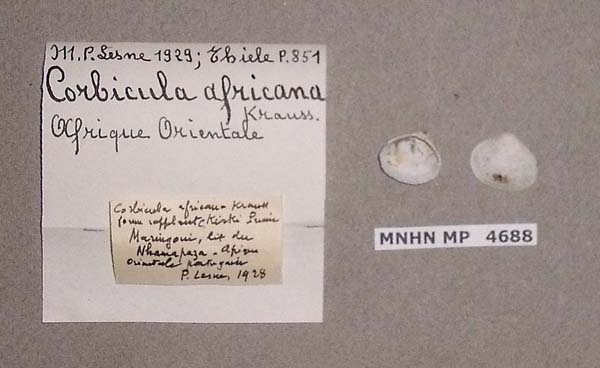 M. P. Lesne 1929; Thiele P. 851
Corbicula africana
Krauss.
Afrique Orientale
Corbicula africana Krauss
Maringoui, lit du
Nhamapaza - Afrique
orientale portugaise
P. Lesne, 1928
MNHN MP 4688